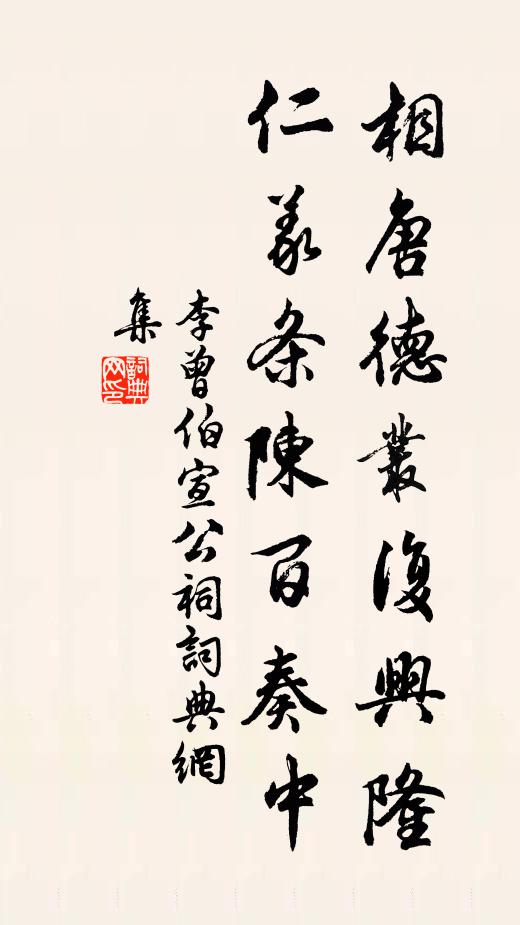 相唐德叢復興隆
仁义条陳百奏中
李曾伯宣公祠詞典網
集
詞典網印